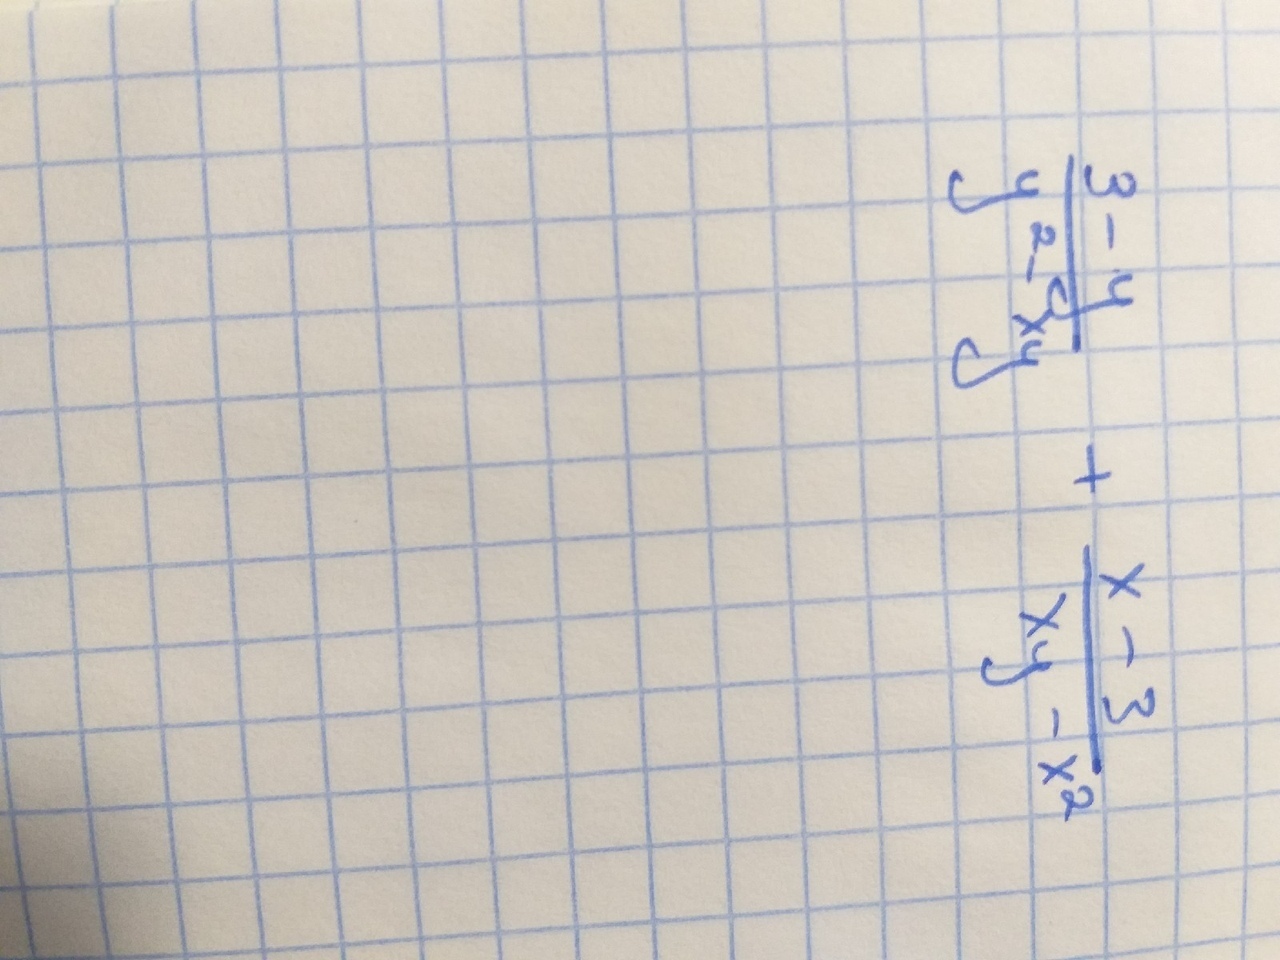 3 - y / y² - xy + x - 3 / xy - x²